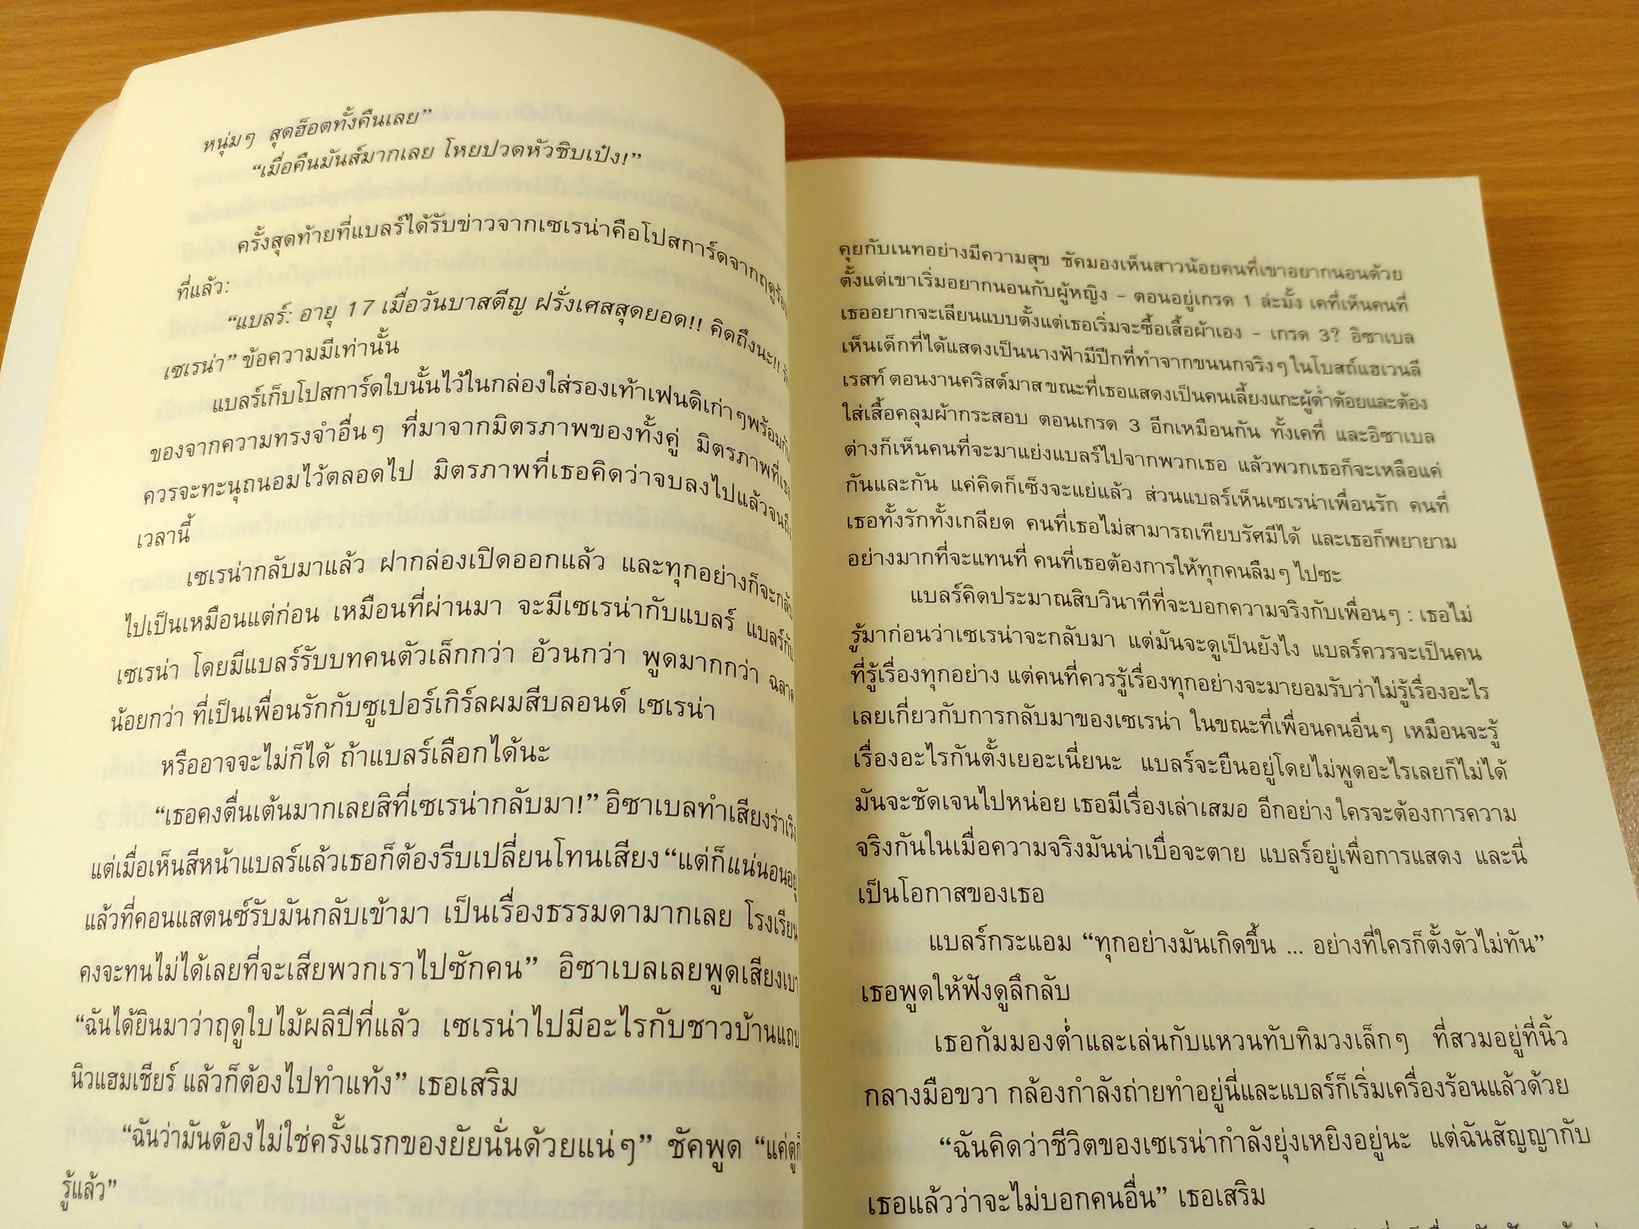 หนุ่มๆ สุดฮ็อตทั้งคืนเลย”
“เมื่อคืนมันส์มากเลย โหยปวดหัวชิบเป๋ง!”
ครั้งสุดท้ายที่แบลร์ได้รับข่าวจากเซเรน่าคือโปสการ์ดจากฤดูร้อน
ที่แล้ว:
“แบลร์: อายุ 17 เมื่อวันบาสตีญ ฝรั่งเศสสุดยอด!! คิดถึงนะ!!
เซเรน่า” ข้อความมีเท่านั้น
แบลร์เก็บโปสการ์ดใบนั้นไว้ในกล่องใส่รองเท้าเฟนดิเก่าๆพร้อมกับ
ของจากความทรงจำอื่นๆ ที่มาจากมิตรภาพของทั้งคู่ มิตรภาพที่เธอ
ควรจะทะนุถนอมไว้ตลอดไป มิตรภาพที่เธอคิดว่าจบลงไปแล้วจนถึง
เวลานี้
เซเรน่ากลับมาแล้ว ฝากล่องเปิดออกแล้ว และทุกอย่างก็จะกลับ
ไปเป็นเหมือนแต่ก่อน เหมือนที่ผ่านมา จะมีเซเรน่ากับแบลร์ แบลร์กับ
เซเรน่า โดยมีแบลร์รับบทคนตัวเล็กกว่า อ้วนกว่า พูดมากกว่า ฉลาด
น้อยกว่า ที่เป็นเพื่อนรักกับซูเปอร์เกิร์ลผมสีบลอนด์ เซเรน่า
หรืออาจจะไม่ก็ได้ ถ้าแบลร์เลือกได้นะ
“เธอคงตื่นเต้นมากเลยสิที่เซเรน่ากลับมา!” อิซาเบลทำเสียงร่าเริง
แต่เมื่อเห็นสีหน้าแบลร์แล้วเธอก็ต้องรีบเปลี่ยนโทนเสียง “แต่ก็แน่นอนอยู่
แล้วที่คอนแสตนซ์รับมันกลับเข้ามา เป็นเรื่องธรรมดามากเลย โรงเรียน
คงจะทนไม่ได้เลยที่จะเสียพวกเราไปซักคน” อิซาเบลเลยพูดเสียงเบา
“ฉันได้ยินมาว่าฤดูใบไม้ผลิปีที่แล้ว เซเรน่าไปมีอะไรกับชาวบ้านแถบ
นิวแฮมเชียร์ แล้วก็ต้องไปทำแท้ง” เธอเสริม
“ฉันว่ามันต้องไม่ใช่ครั้งแรกของยัยนั่นด้วยแน่ๆ” ชัคพูด “แค่ดูก็
รู้แล้ว”
คุยกับเนทอย่างมีความสุข ชัคมองเห็นสาวน้อยคนที่เขาอยากนอนด้วย
ตั้งแต่เขาเริ่มอยากนอนกับผู้หญิง – ตอนอยู่เกรด 1 ล่ะมั้ง เคที่เห็นคนที่
เธออยากจะเลียนแบบตั้งแต่เธอเริ่มจะซื้อเสื้อผ้าเอง – เกรด 3? อิซาเบล
เห็นเด็กที่ได้แสดงเป็นนางฟ้ามีปีกที่ทำจากขนนกจริงๆ ในโบสถ์แฮเวนลี
เรสท์ ตอนงานคริสต์มาส ขณะที่เธอแสดงเป็นคนเลี้ยงแกะผู้ต่ำต้อยและต้อง
ใส่เสื้อคลุมผ้ากระสอบ ตอนเกรด 3 อีกเหมือนกัน ทั้งเคที่ และอิซาเบล
ต่างก็เห็นคนที่จะมาแย่งแบลร์ไปจากพวกเธอ แล้วพวกเธอก็จะเหลือแค่
กันและกัน แค่คิดก็เซ็งจะแย่แล้ว ส่วนแบลร์เห็นเซเรน่าเพื่อนรัก คนที่
เธอทั้งรักทั้งเกลียด คนที่เธอไม่สามารถเทียบรัศมีได้ และเธอก็พยายาม
อย่างมากที่จะแทนที่ คนที่เธอต้องการให้ทุกคนลืมๆ ไปซะ
แบลร์คิดประมาณสิบวินาทีที่จะบอกความจริงกับเพื่อนๆ : เธอไม่
รู้มาก่อนว่าเซเรน่าจะกลับมา แต่มันจะดูเป็นยังไง แบลร์ควรจะเป็นคน
ที่รู้เรื่องทุกอย่าง แต่คนที่ควรรู้เรื่องทุกอย่างจะมายอมรับว่าไม่รู้เรื่องอะไร
เลยเกี่ยวกับการกลับมาของเซเรน่า ในขณะที่เพื่อนคนอื่นๆ เหมือนจะรู้
เรื่องอะไรกันตั้งเยอะเนี่ยนะ แบลร์จะยืนอยู่โดยไม่พูดอะไรเลยก็ไม่ได้
มันจะชัดเจนไปหน่อย เธอมีเรื่องเล่าเสมอ อีกอย่าง ใครจะต้องการความ
จริงกันในเมื่อความจริงมันน่าเบื่อจะตาย แบลร์อยู่เพื่อการแสดง และนี่
เป็นโอกาสของเธอ
แบลร์กระแอม “ทุกอย่างมันเกิดขึ้น ... อย่างที่ใครก็ตั้งตัวไม่ทัน”
เธอพูดให้ฟังดูลึกลับ
เธอก้มมองต่ำและเล่นกับแหวนทับทิมวงเล็กๆ ที่สวมอยู่ที่นิ้ว
กลางมือขวา กล้องกำลังถ่ายทำอยู่นี่และแบลร์ก็เริ่มเครื่องร้อนแล้วด้วย
“ฉันคิดว่าชีวิตของเซเรน่ากำลังยุ่งเหยิงอยู่นะ แต่ฉันสัญญากับ
เธอแล้วว่าจะไม่บอกคนอื่น” เธอเสริม